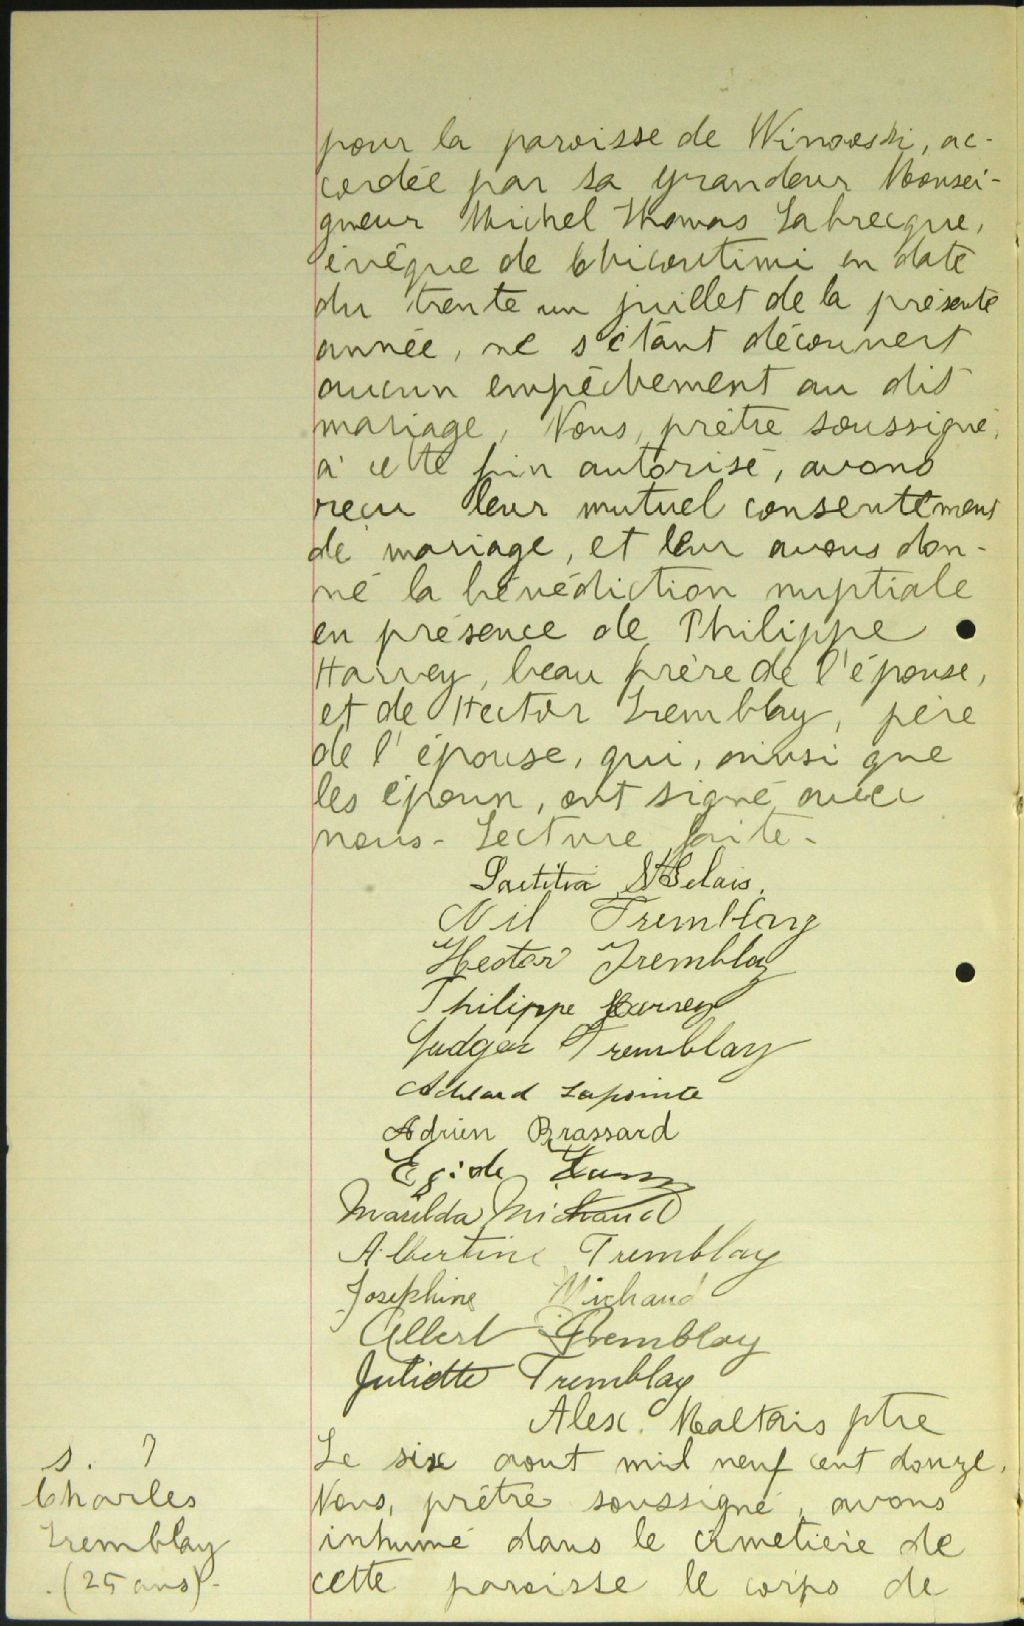 pour la paroisse de Winooski, ac-
cordée par sa grandeur Monsei-
gneur Michel Thomas Labrecque,
évêque de Chicoutimi en date
du trente un juillet de la présente
année, ne s'étant découvert
aucun empêchement au dit
mariage, Nous, prêtre soussigné,
à cette fin autorisé, avons
reçu leur mutuel consentement
de mariage, et leur avons don-
né la bénédiction nuptiale
en présence de Philippe
Harvey, beau frère de l'épouse,
et de Hector Tremblay, père
de l'épouse, qui, ainsi que
les époux, ont signé avec
nous - Lecture faite -
Laetitia St Gelais.
Nil Tremblay
Hector Tremblay
Philippe Harvey
Judger Tremblay
Adelard Lapointe
Adrien Brassard
Egide
Marilda Michaud
Albertine Tremblay
Josephine Michaud
Albert Tremblay
Juliette Tremblay
Alex. Maltais ptre
S. 7
Charles
Tremblay
(25 ans) -
Le six aout mil neuf cent douze,
Nous, prêtre soussigné, avons
inhumé dans le cimetière de
cette paroisse le corps de